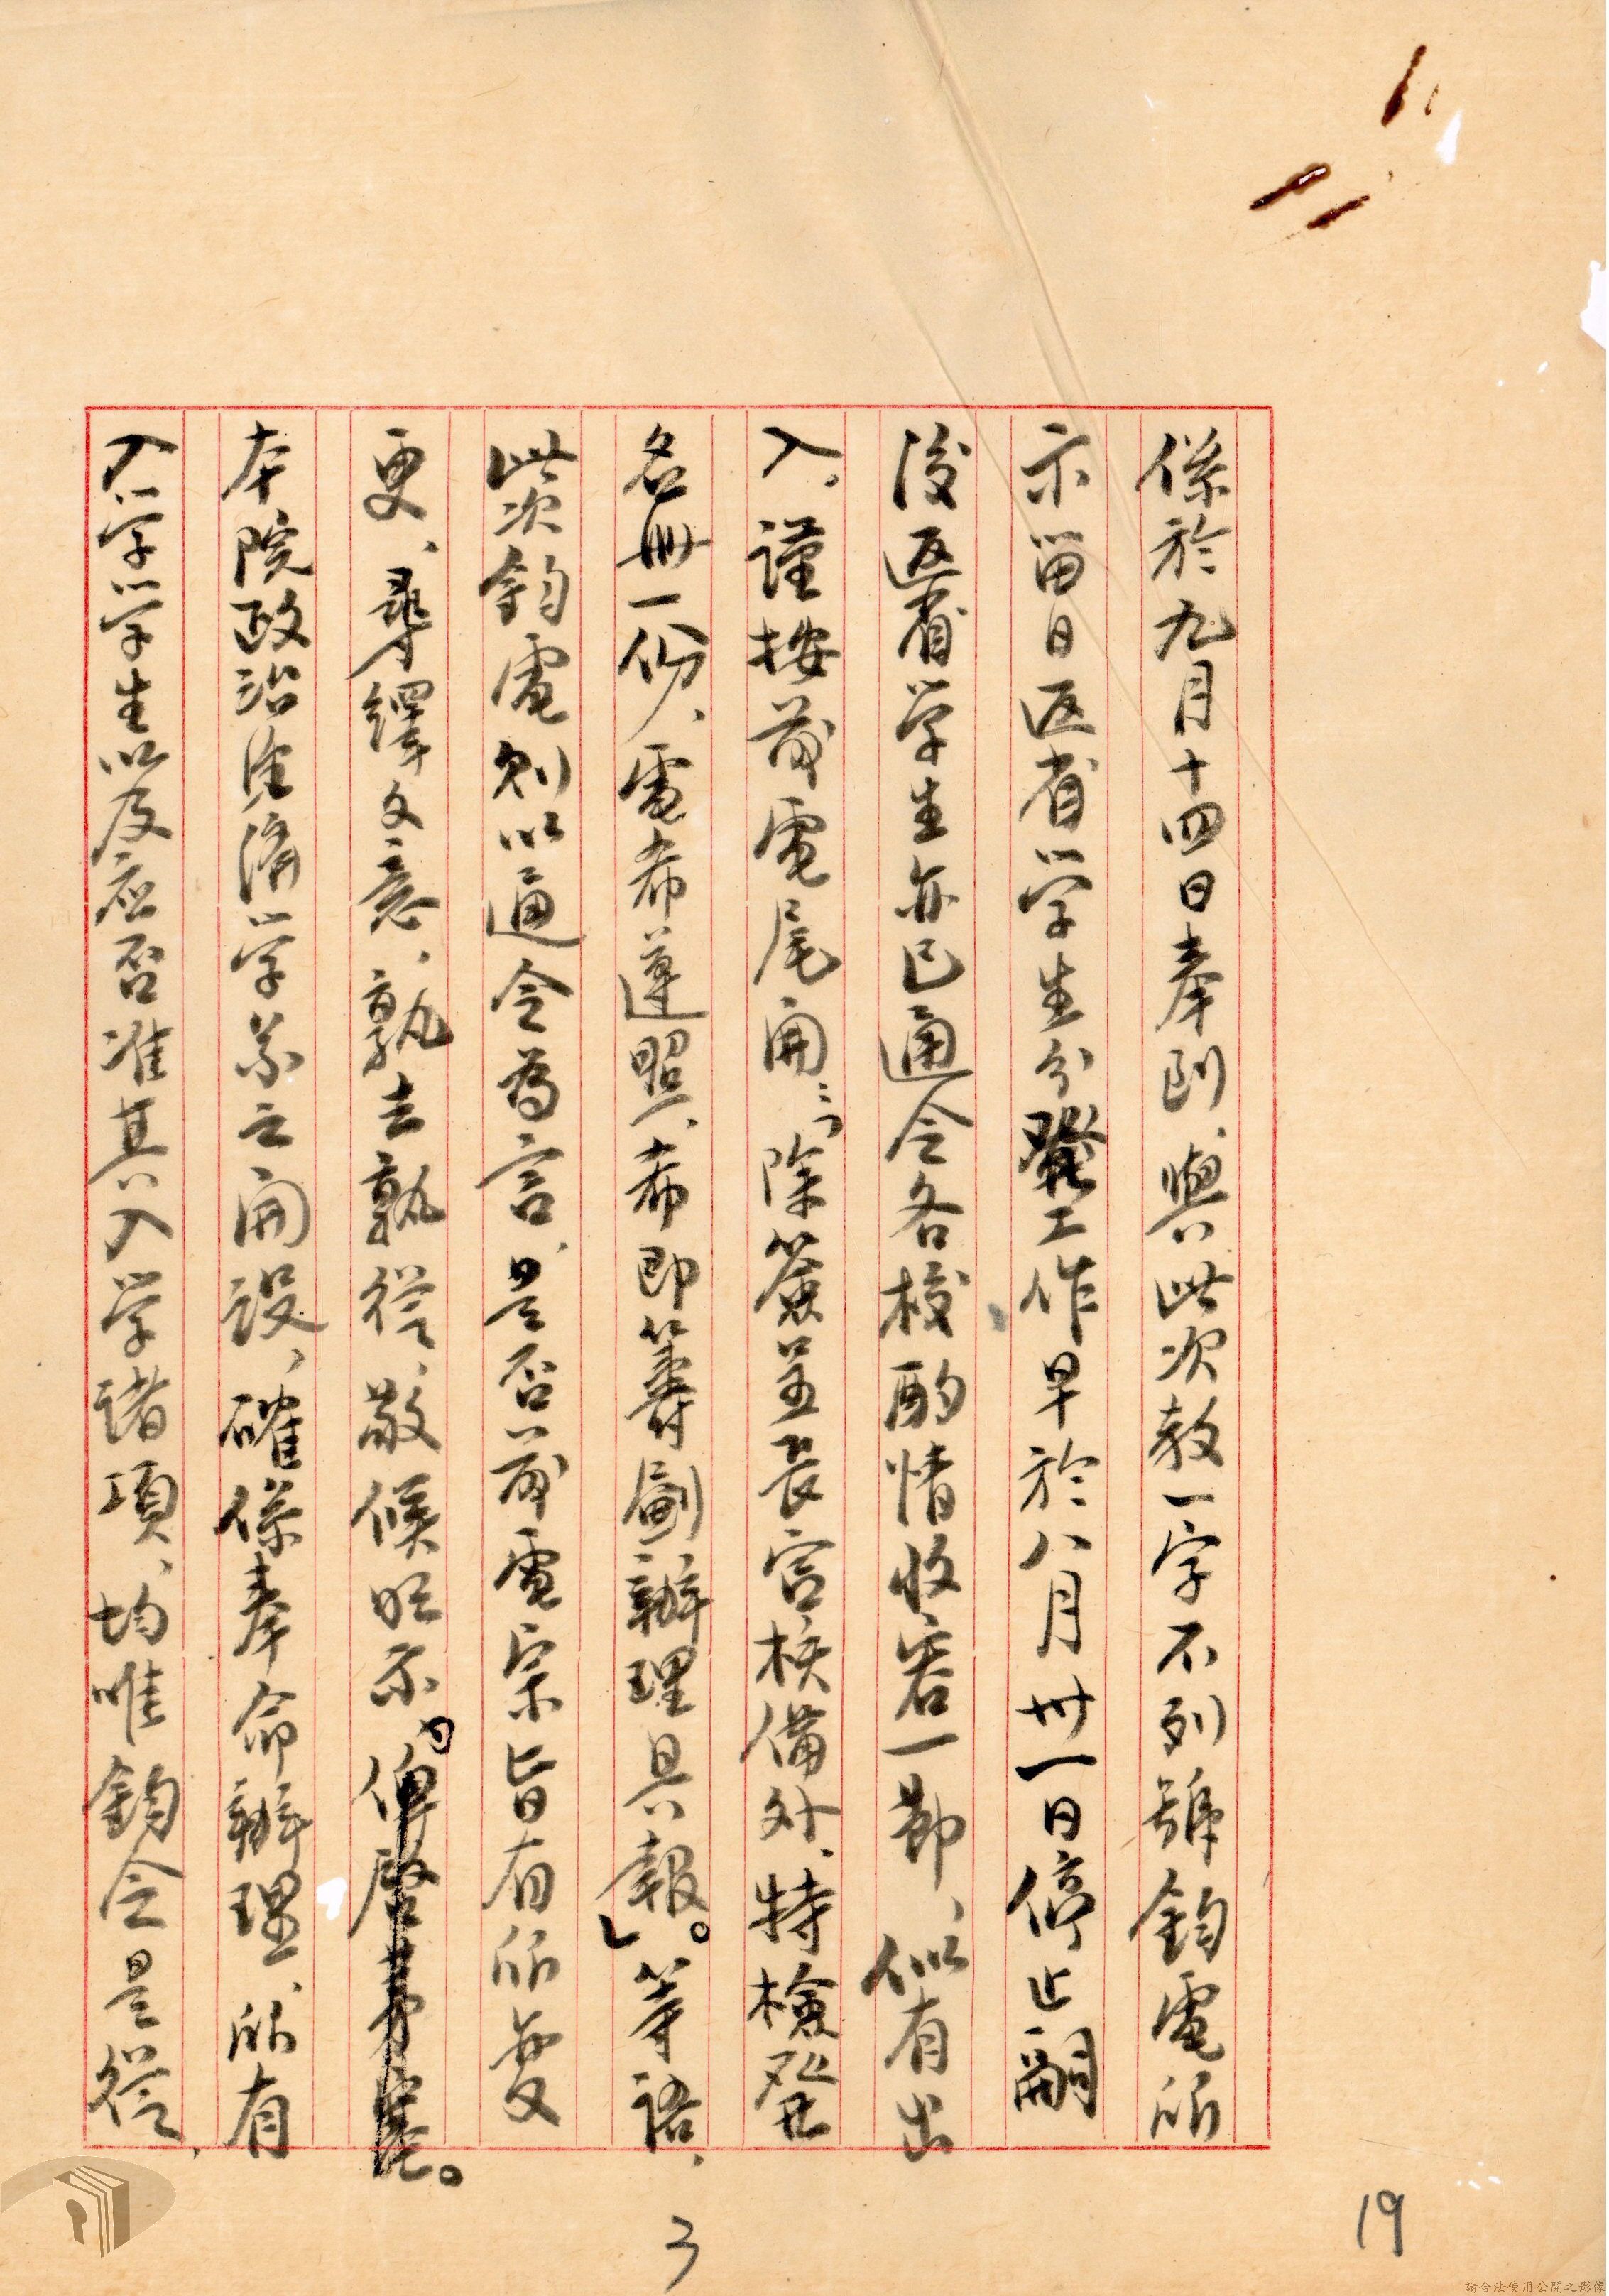 係於九月十四日奉到、與此次教一字不列號鈞電所
示留日返省学生分發工作早於八月卅一日停止嗣
後返省学生亦已通令各校酌情收容一節、似有出
入。謹按前電尾開：「除簽呈長官核備外、特檢發
名冊一份、電希遵照、希即籌劃辦理具報」。等語、
此次鈞電則以通令為言、是否前電宗旨有所變
更、尋繹文意、孰去孰從、敬候明示。俾啓茅塞。
本院政治經濟学系之開設、確係奉命辦理、所有
入学学生以及應否准其入学諸項、均唯鈞令是從、
3
19
請合法使用公開之影像